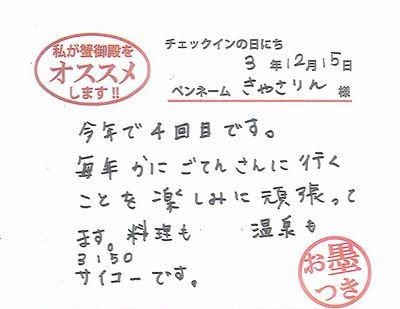 私が蟹御殿を
オススメ
します!!
チェックインの日にち
3 年 12月 15日
ペンネーム きやさりん 様
今年で4回目です。
毎年 かに ごてんさんに 行く
ことを 楽しみに 頑張って
ます。料理も 温泉も
3150
サイコーです。
お墨
つき